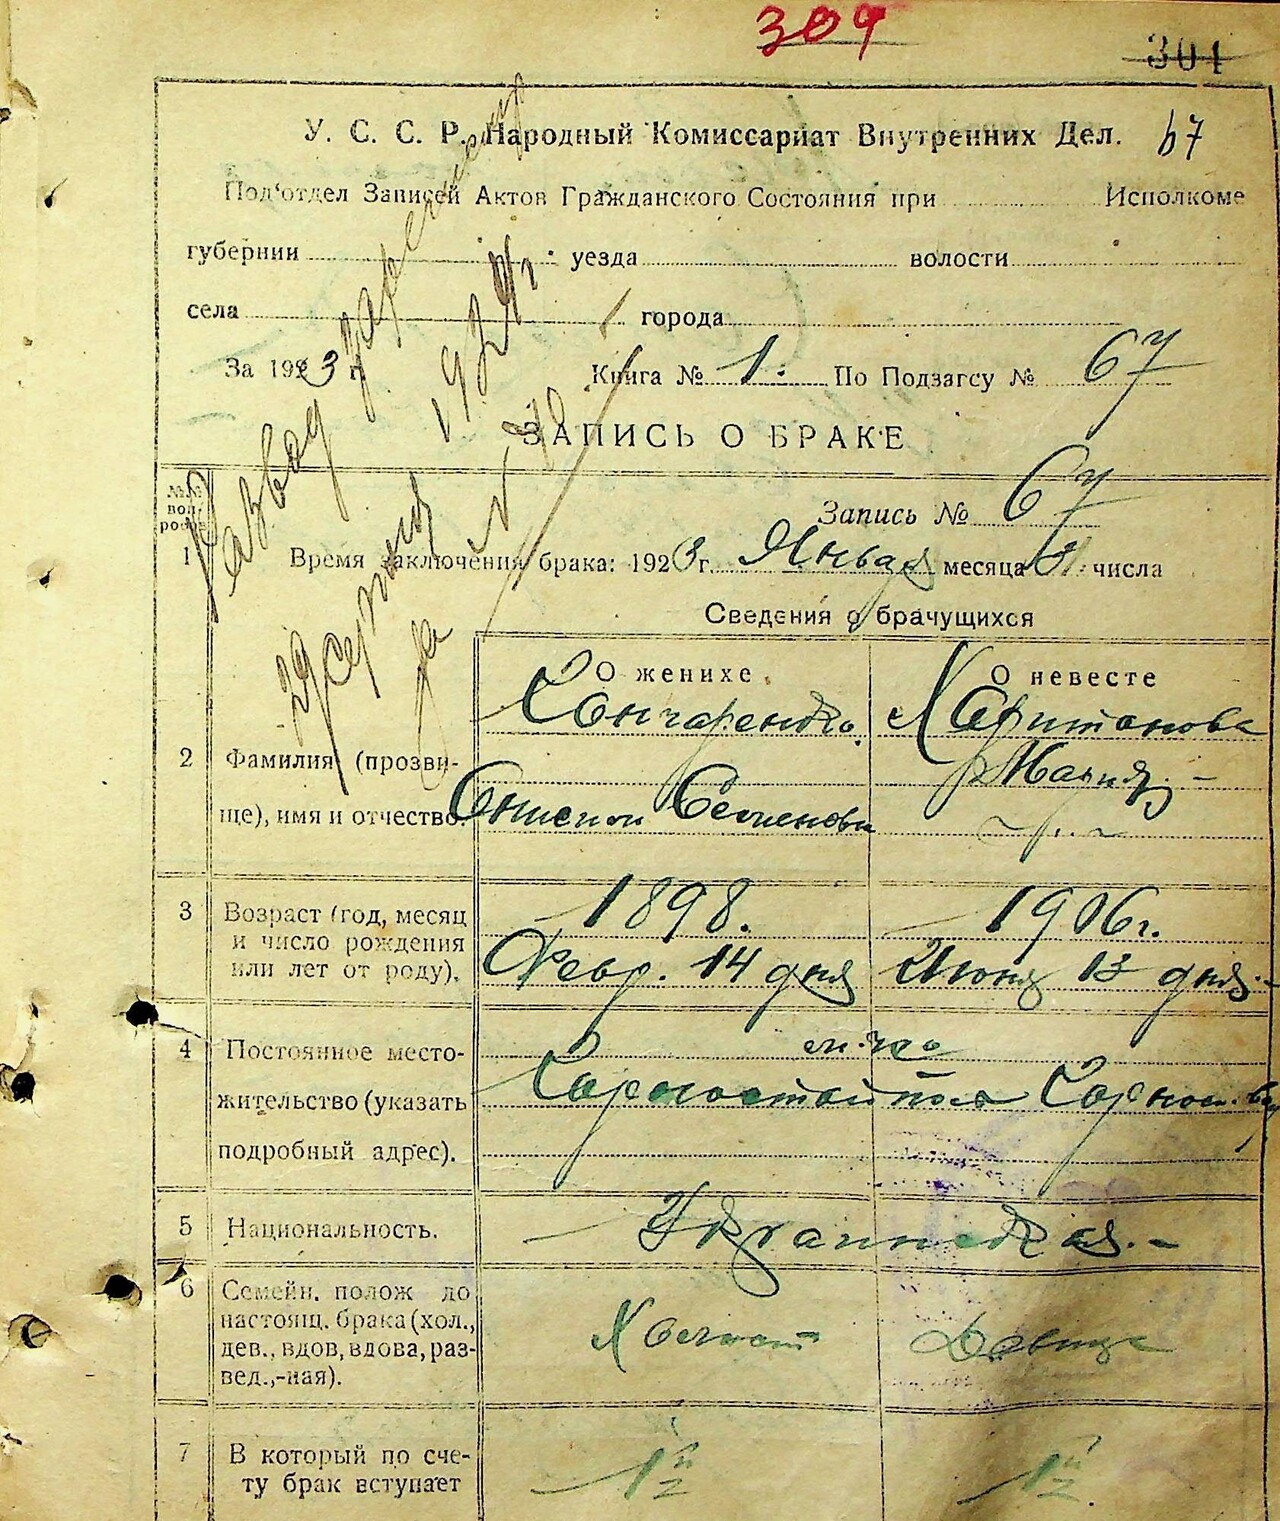 309
304
У. С. С. Р. Народный Комиссариат Внутренних Дел. 67
Под'отдел Записей Актов Гражданского Состояния при Исполкоме
губернии уезда волости
села города
За 1923 г. Книга № 1. По Подзагсу № 67
ЗАПИСЬ О БРАКЕ
Развод
192
за №
№№ вопросов
Запись № 67
1 Время заключения брака: 1923 г. Января месяца числа
Сведения о брачущихся
О женихе. О невесте
Гончаренко Харитонова
2 Фамилия (прозви- Мария
ще), имя и отчество. Семенови
3 Возраст (год, месяц 1898. 1906 г.
и число рождения
или лет от роду). Февр. 14 дня Июня 13 дня
4 Постоянное место-
жительство (указать Горностайполь
подробный адрес).
5 Национальность. Украинская
6 Семейн. полож до
настоящ. брака (хол.,
дев., вдов, вдова, раз- Холост Девица
вед.,-ная).
7 В который по сче-
ту брак вступает 1й 1й